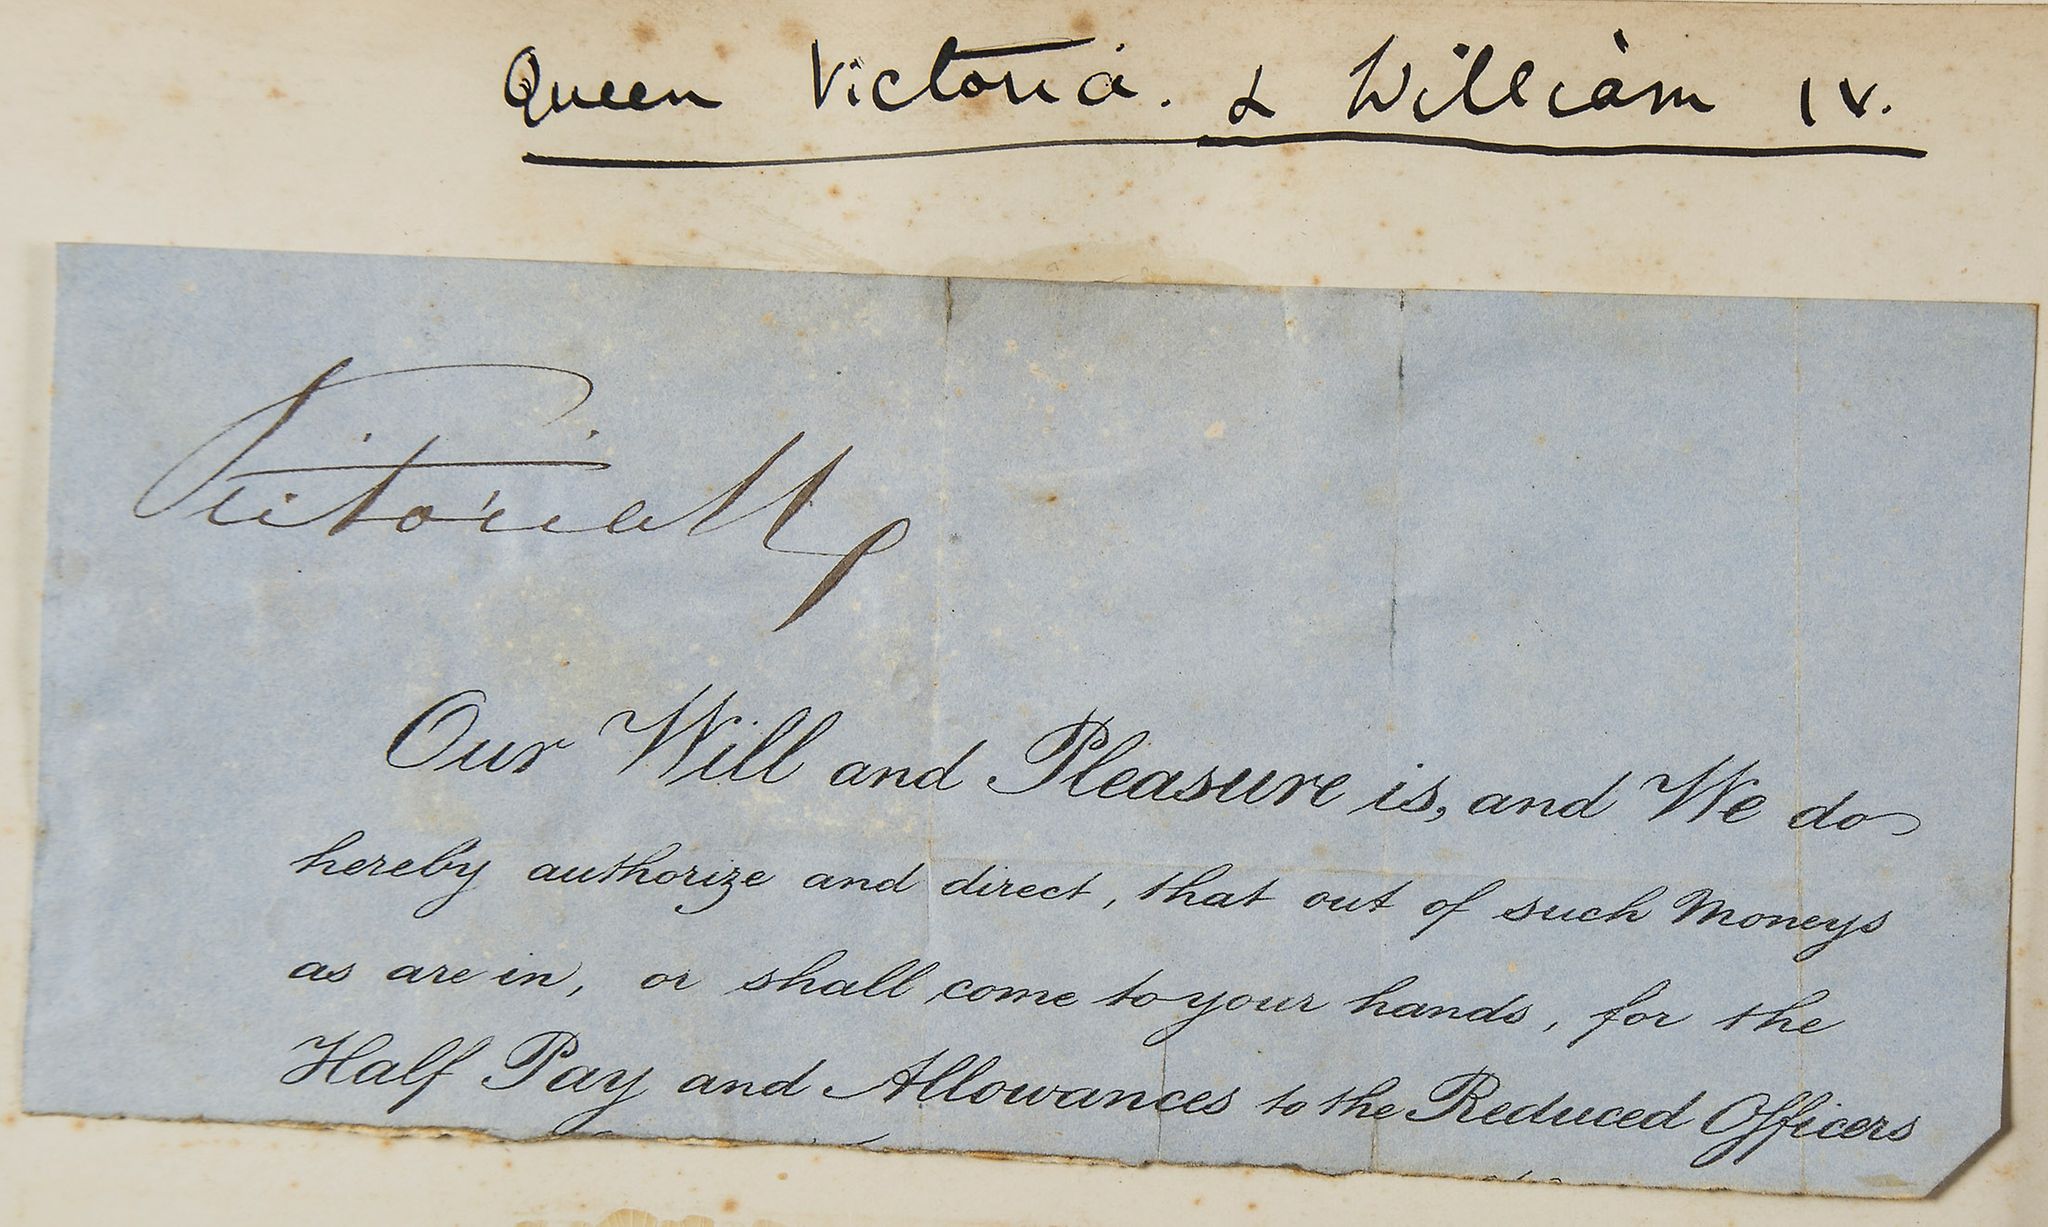 Queen Victoria. & William IV.
Victoria R
Our Will and Pleasure is, and We do
hereby authorize and direct, that out of such Moneys
as are in, or shall come to your hands, for the
Half Pay and Allowances to the Reduced Officers